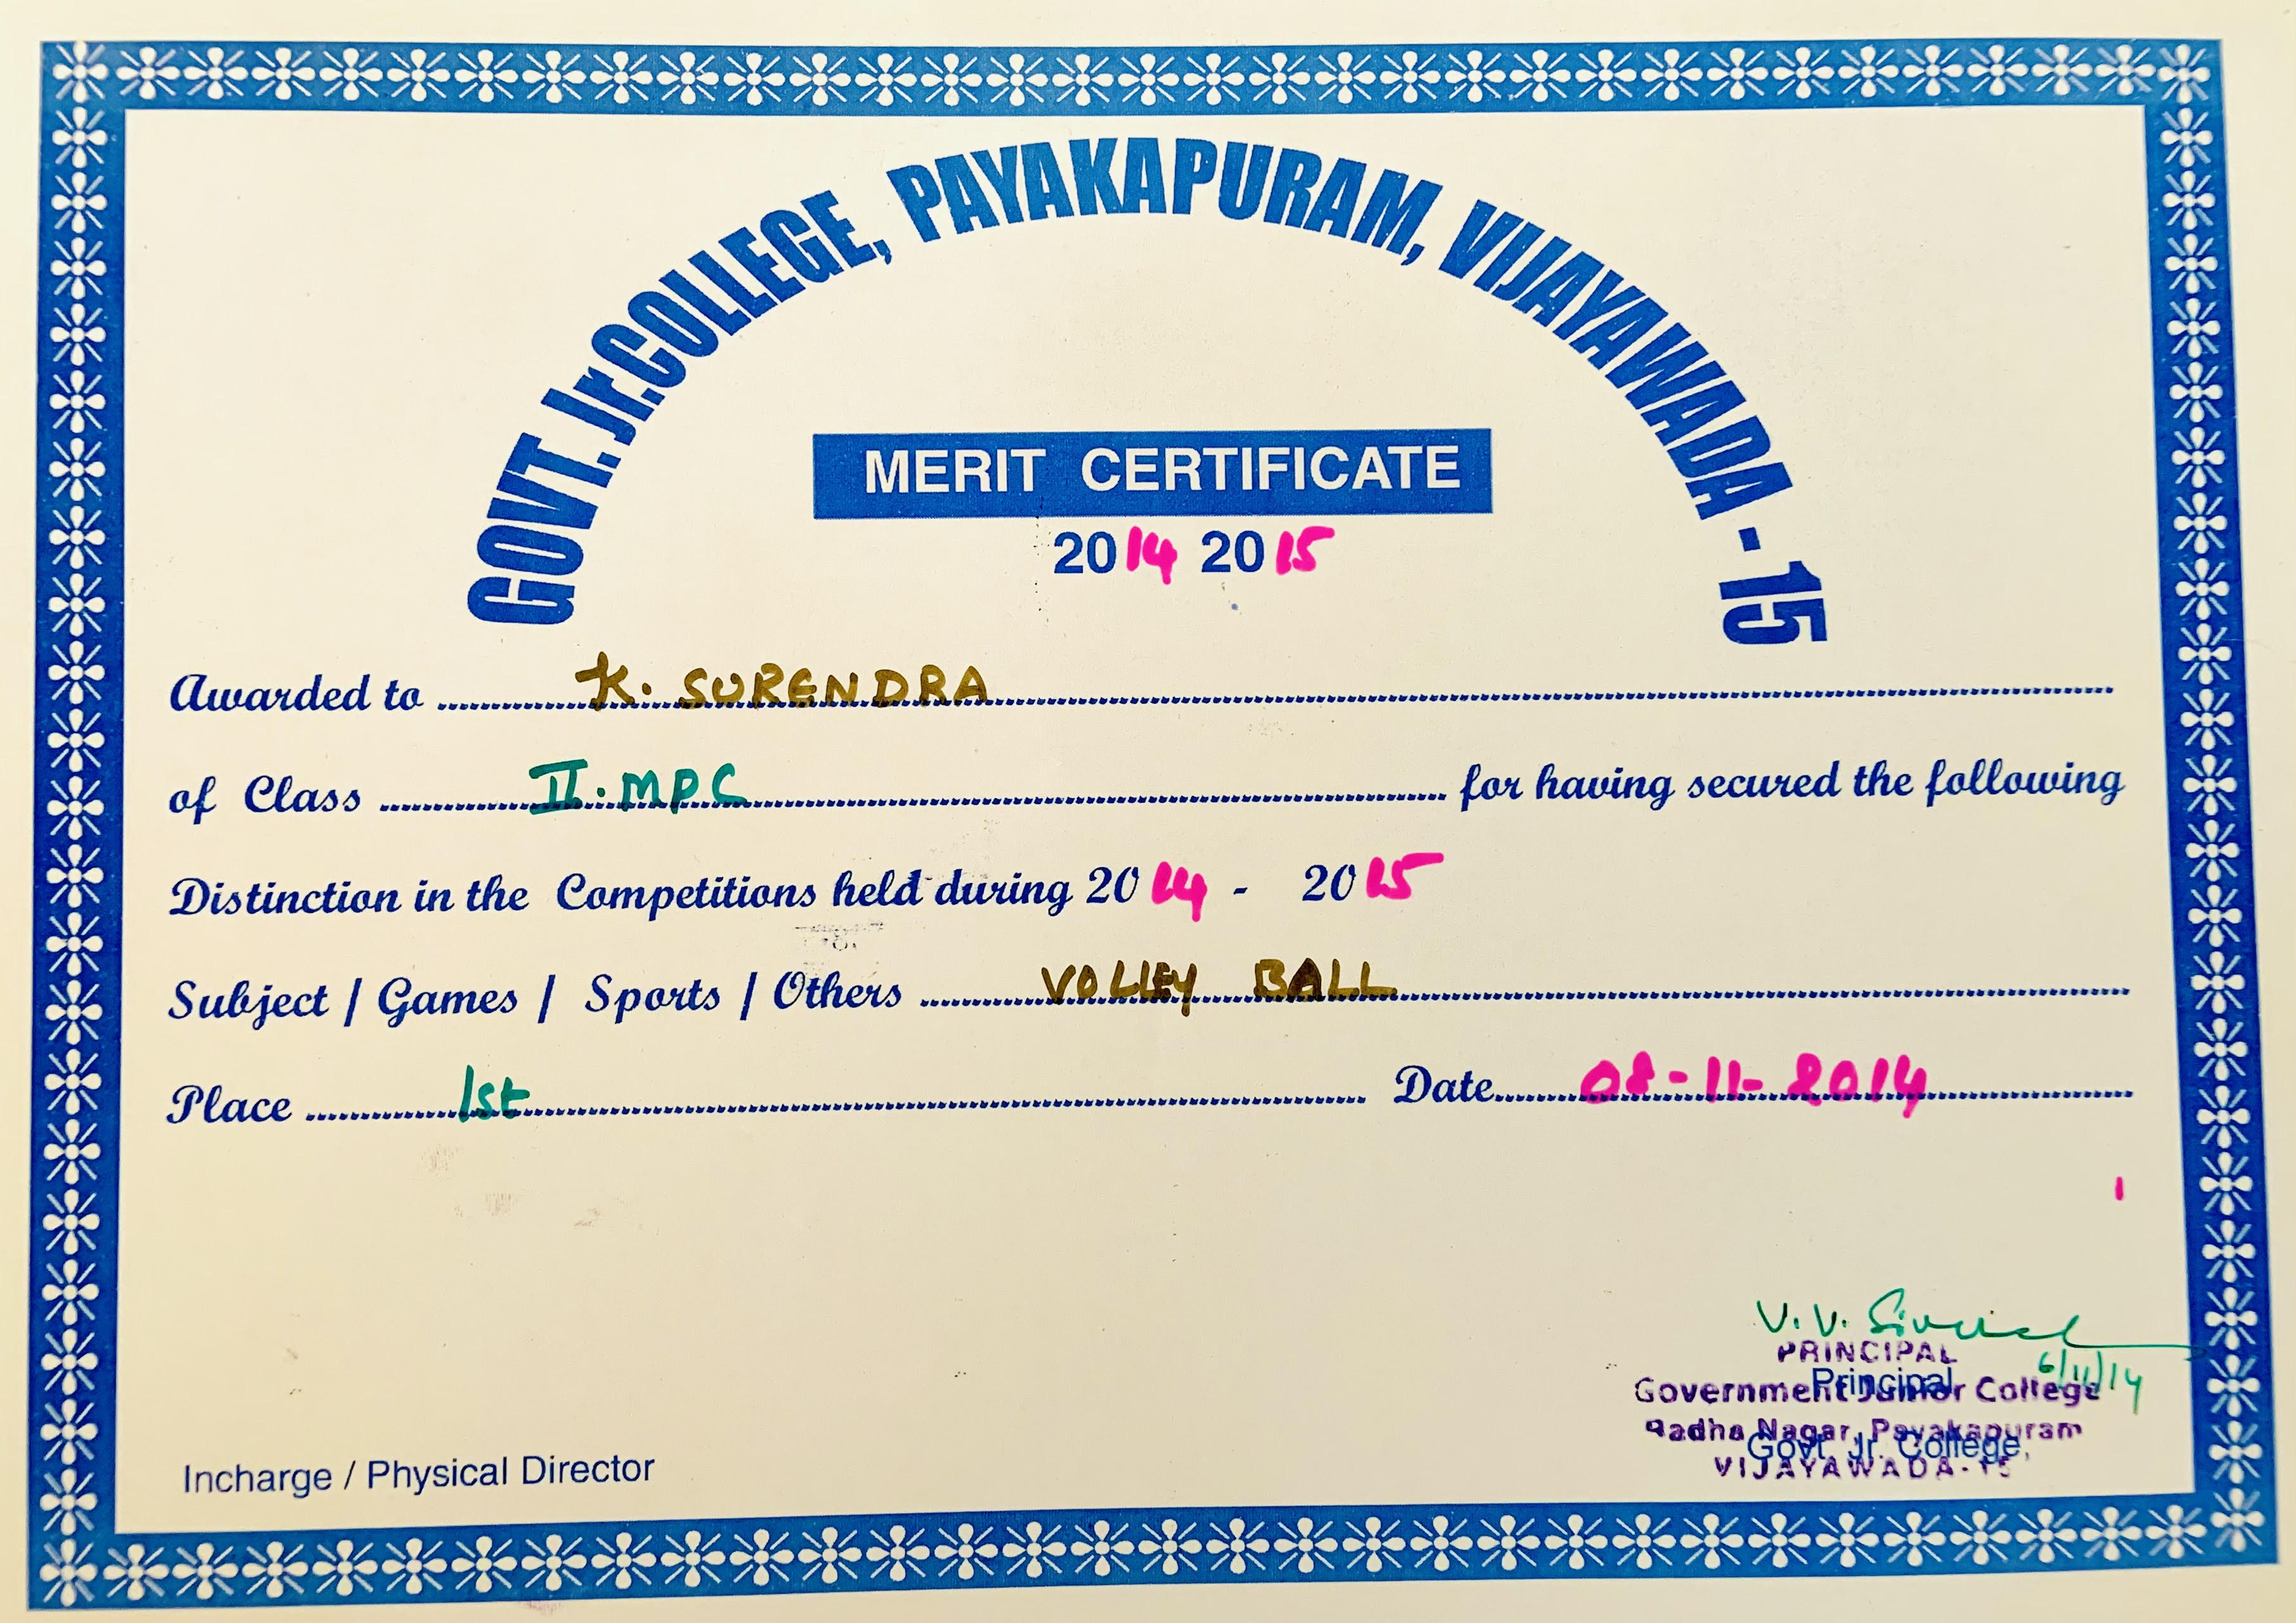 GOVT. Jr. COLLEGE, PAYAKAPURAM, VIJAYAWADA - 15
MERIT CERTIFICATE
2014 2015
Awarded to K. SURENDRA
of Class II. MPC for having secured the following
Distinction in the Competitions held during 2014 - 2015
Subject / Games / Sports / Others VOLLEY BALL
Place 1st Date 08-11-2014
V.V.
PRINCIPAL
6/11/14
Principal
Government Junior College
Radha Nagar, Payakapuram
Govt. Jr. College,
VIJAYAWADA-15
Incharge / Physical Director